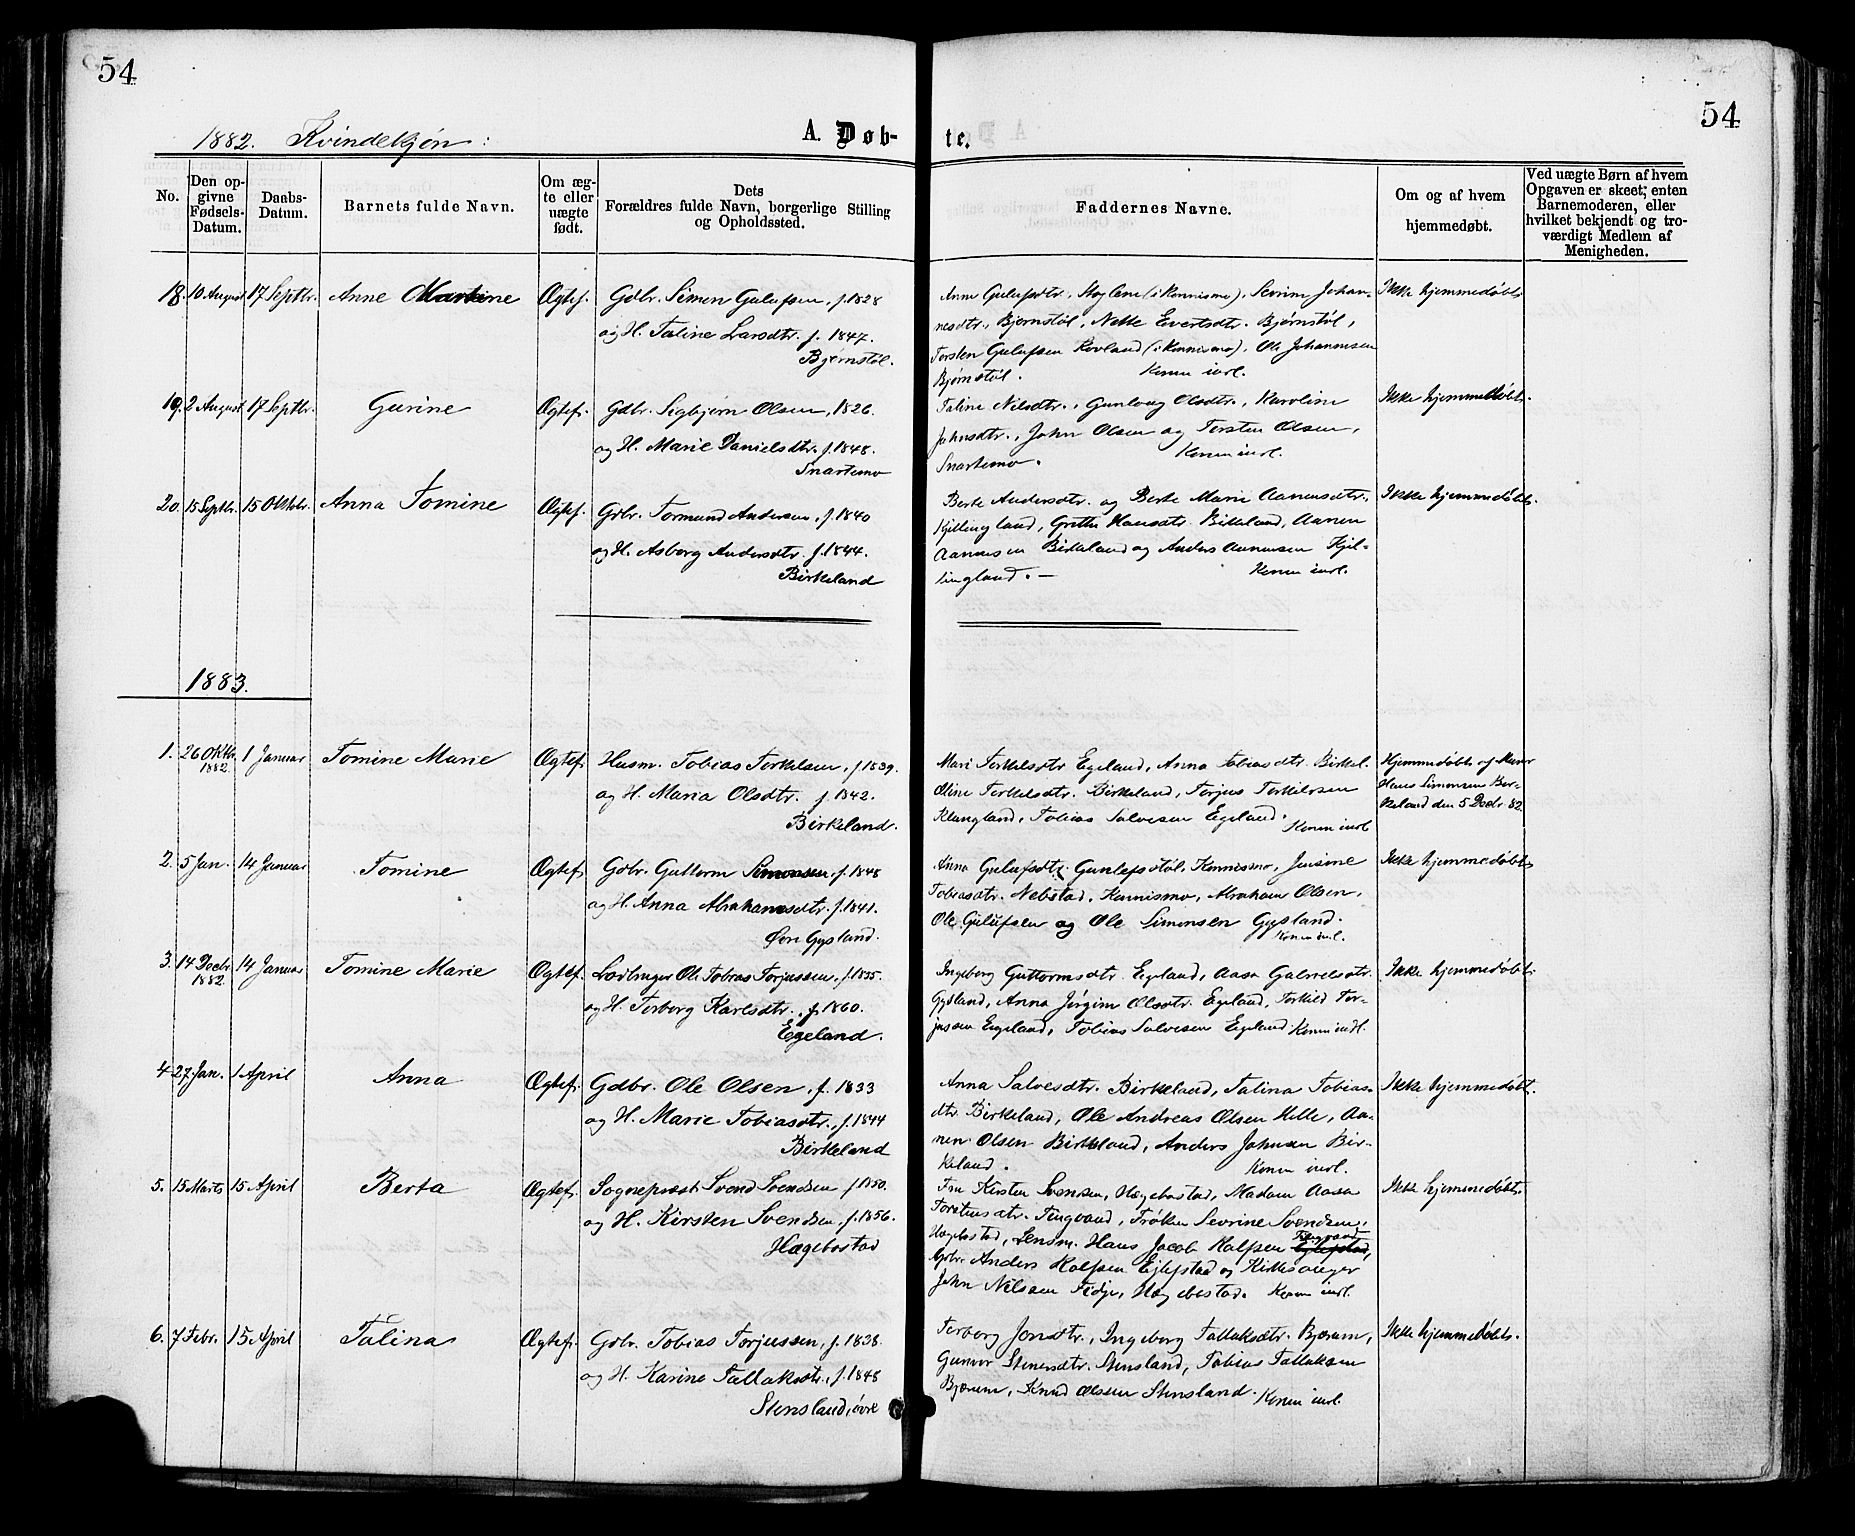 54
54
1882. Kvindekjøn:
A. Døb-
te.
No.
Den op-
givne
Fødsels-
Datum.
Daabs-
Datum.
Barnets fulde Navn.
Om æg-
te eller
uægte
født.
Dets
Forældres fulde Navn, borgerlige Stilling
og Opholdssted.
Faddernes Navne.
Om og af hvem
hjemmedøbt.
Ved uægte Børn af hvem
Opgaven er skeet; enten
Barnemoderen, eller
hvilket bekjendt og tro-
værdigt Medlem af
Menigheden.
18. 10 August 17 Septbr. Anne Martine Ægtef. Gdbr. Simon Gulufsen, f. 1828
og H. Taline Larsdtr. f. 1847.
Bjørnstøl.
Anne Gulufsdtr. (i Konnismo), Sevrine Johan-
nesdtr., Bjørnstøl, Nette Evertsdtr. Bjørnstøl,
Torsten Gulufsen Rovland (i Konnismo), Ole Johannesen
Bjørnstøl. Konen indl.
Ikke hjemmedøbt
19. 2 August 17 Septbr. Gurine Ægtef. Gdbr. Sigbjørn Olsen, 1826.
og H. Marie Danielsdtr. f. 1848.
Snartemo
Taline Nilsdtr., Gunlaug Olsdtr., Karoline
Johnsdtr., John Olsen og Torsten Olsen,
Snartemo. Konen indl.
Ikke hjemmedøbt.
20. 15 Septbr. 15 Oktobr. Anna Tomine Ægtef. Gdbr. Tormund Andersen, f. 1840
og H. Asborg Andersdtr. f. 1844.
Birkeland
Berte Andersdtr. og Berte Marie Aanensdtr.
Kjillingland, Grethe Hansdtr. Birkeland, Aanen
Aanensen Birkeland og Anders Aanensen Kjil-
lingland. – Konen indl.
Ikke hjemmedøbt.
1883.
1. 26 Oktbr. 1882. 1 Januar Tomine Marie Ægtef Husm. Tobias Torkelsen, f. 1839.
og H. Maria Olsdtr. f. 1842.
Birkeland.
Mari Torkelsdtr Egeland, Anna Tobiasdtr. Birkel.
Oline Torkelsdtr. Birkeland, Torjus Torkilsen
Klungland, Tobias Salvesen Egeland. Konen indl
Hjemmedøbt af
Simonsen Bir-
keland den 5 Decbr 82.
2. 5 Jan. 14 Januar Tomine Ægtef Gdbr. Guttorm Simonsen, f. 1848
og H. Anna Abrahamsdtr. f. 1841.
Øvre Gysland.
Anna Gulufsdtr. Gunlefsstøl, Konnismo, Jensine
Tobiasdtr. Nebstad, Konnismo, Abraham Olsen,
Ole Gulufsen og Ole Simonsen Gysland.
Konen indl.
Ikke hjemmedøbt
3. 14 Decbr 1882. 14 Januar Tomine Marie Ægtef. Ole Tobias Torjussen, f. 1835.
og H. Torborg Karlsdtr., f. 1860.
Egeland.
Ingeborg Guttormsdtr. Egeland, Aasa Gabrielsdtr.
Gysland, Anna Jørgine Olsdtr. Egeland, Torkild Tor-
jussen Egeland, Tobias Salvesen Egeland. Konen indl.
Ikke hjemmedøbt.
4. 27 Jan. 1 April Anna Ægtef. Gdbr. Ole Olsen, f. 1833
og H. Marie Tobiasdtr., f. 1844
Birkeland
Anna Salvesdtr. Birkeland, Talina Tobias-
dtr. Birkeland, Ole Andreas Olsen Helle, Aa-
nen Olsen Birkeland, Anders Johnsen Bir-
keland. Konen indl.
Ikke hjemmedøbt.
5. 15 Marts 15 April Berta Ægtef. Sognepræst Svend Svendsen f. 1850.
og H. Kirsten Svendsen, f. 1856.
Hægebostad
Fru Kirsten Svendsen, Hægebostad, Madam Aasa
Torstensdtr. Tingvand, Frøken Sevrine Svendsen,
Hægebostad, Lensm. Hans Jacob Rolfsen Tingvand Eglefstad,
Gdbr. Anders Rolfsen Eglefstad og Kirkesanger
John Nilsen Fidje, Hægebostad. Konen indl.
Ikke hjemmedøbt.
6. 7 Febr. 15 April Talina Ægtef. Gdbr. Tobias Torjussen, f. 1838.
og H. Karine Tallaksdtr., f. 1848
Stensland, øvre
Torborg Jonsdtr., Ingeborg Tallaksdtr. Bjærum,
Gunvor Stenersdtr. Stensland, Tobias Tallaksen
Bjærum, Knud Olsen Stensland. Konen indl.
Ikke hjemmedøbt.